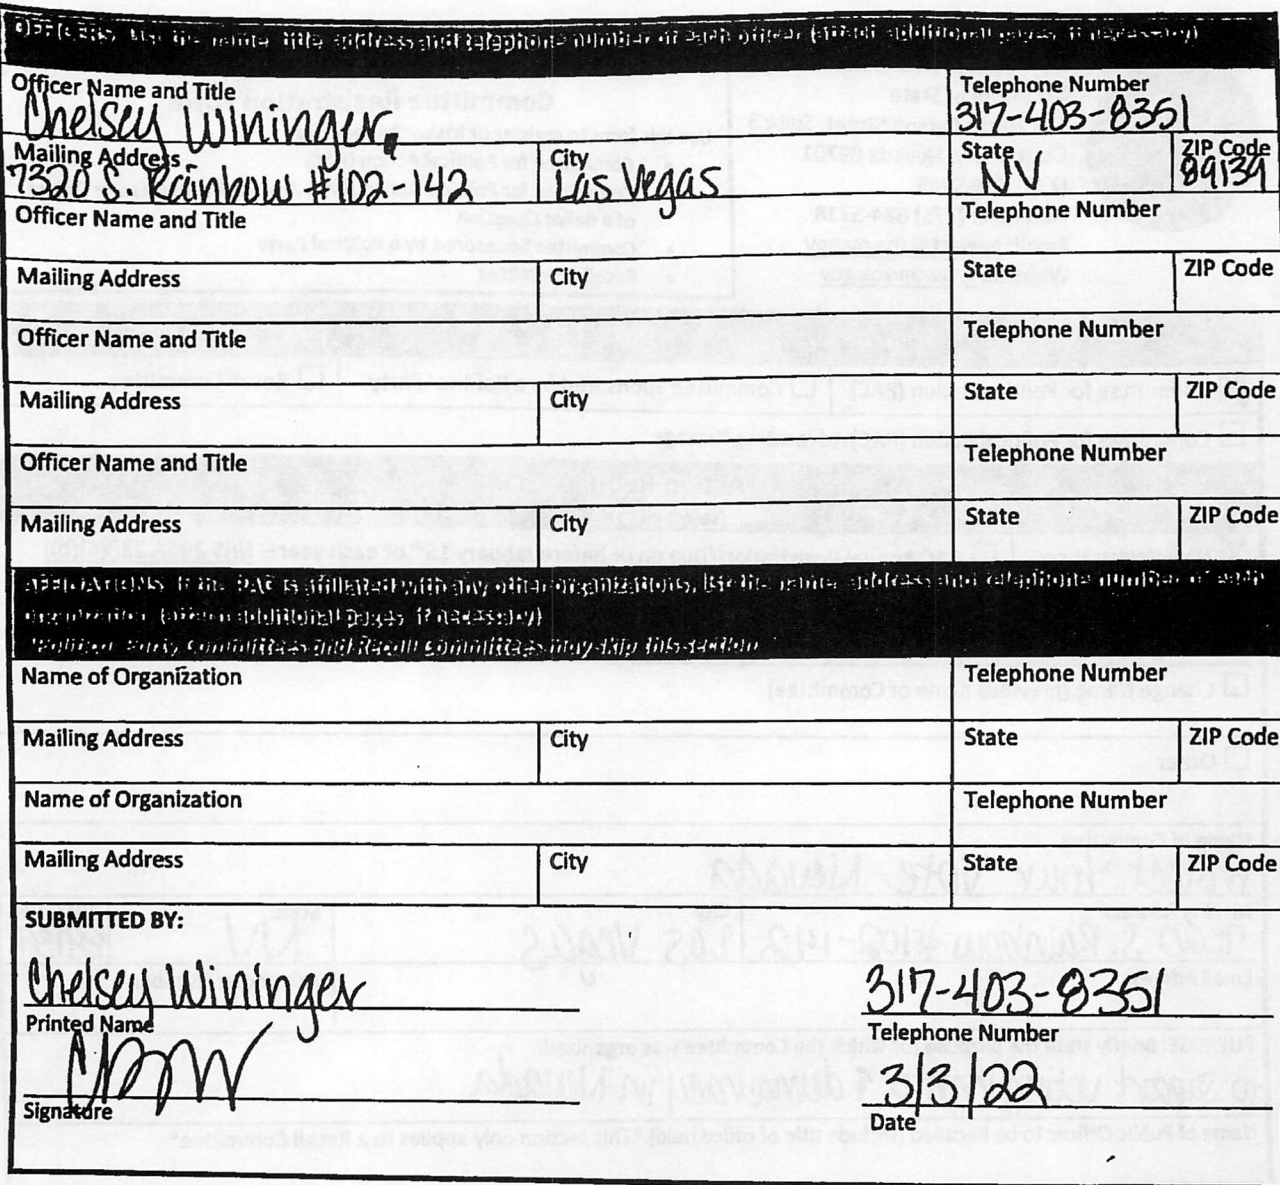 OFFICERS: List the name, title, address and telephone number of each officer (attach additional pages, if necessary)
Officer Name and Title Telephone Number
Chelsey Wininger, 317-403-8351
Mailing Address City State ZIP Code
7320 S Rainbow #102-142 Las Vegas NV 89139
Officer Name and Title Telephone Number
Mailing Address City State ZIP Code
Officer Name and Title Telephone Number
Mailing Address City State ZIP Code
Officer Name and Title Telephone Number
Mailing Address City State ZIP Code
AFFILIATIONS: If the PAC is affiliated with any other organizations, list the name, address and telephone number of each
organization (attach additional pages, if necessary)
*Political Party Committees and Recall Committees may skip this section
Name of Organization Telephone Number
Mailing Address City State ZIP Code
Name of Organization Telephone Number
Mailing Address City State ZIP Code
SUBMITTED BY:
Chelsey Wininger 317-403-8351
Printed Name Telephone Number
3/3/22
Signature Date